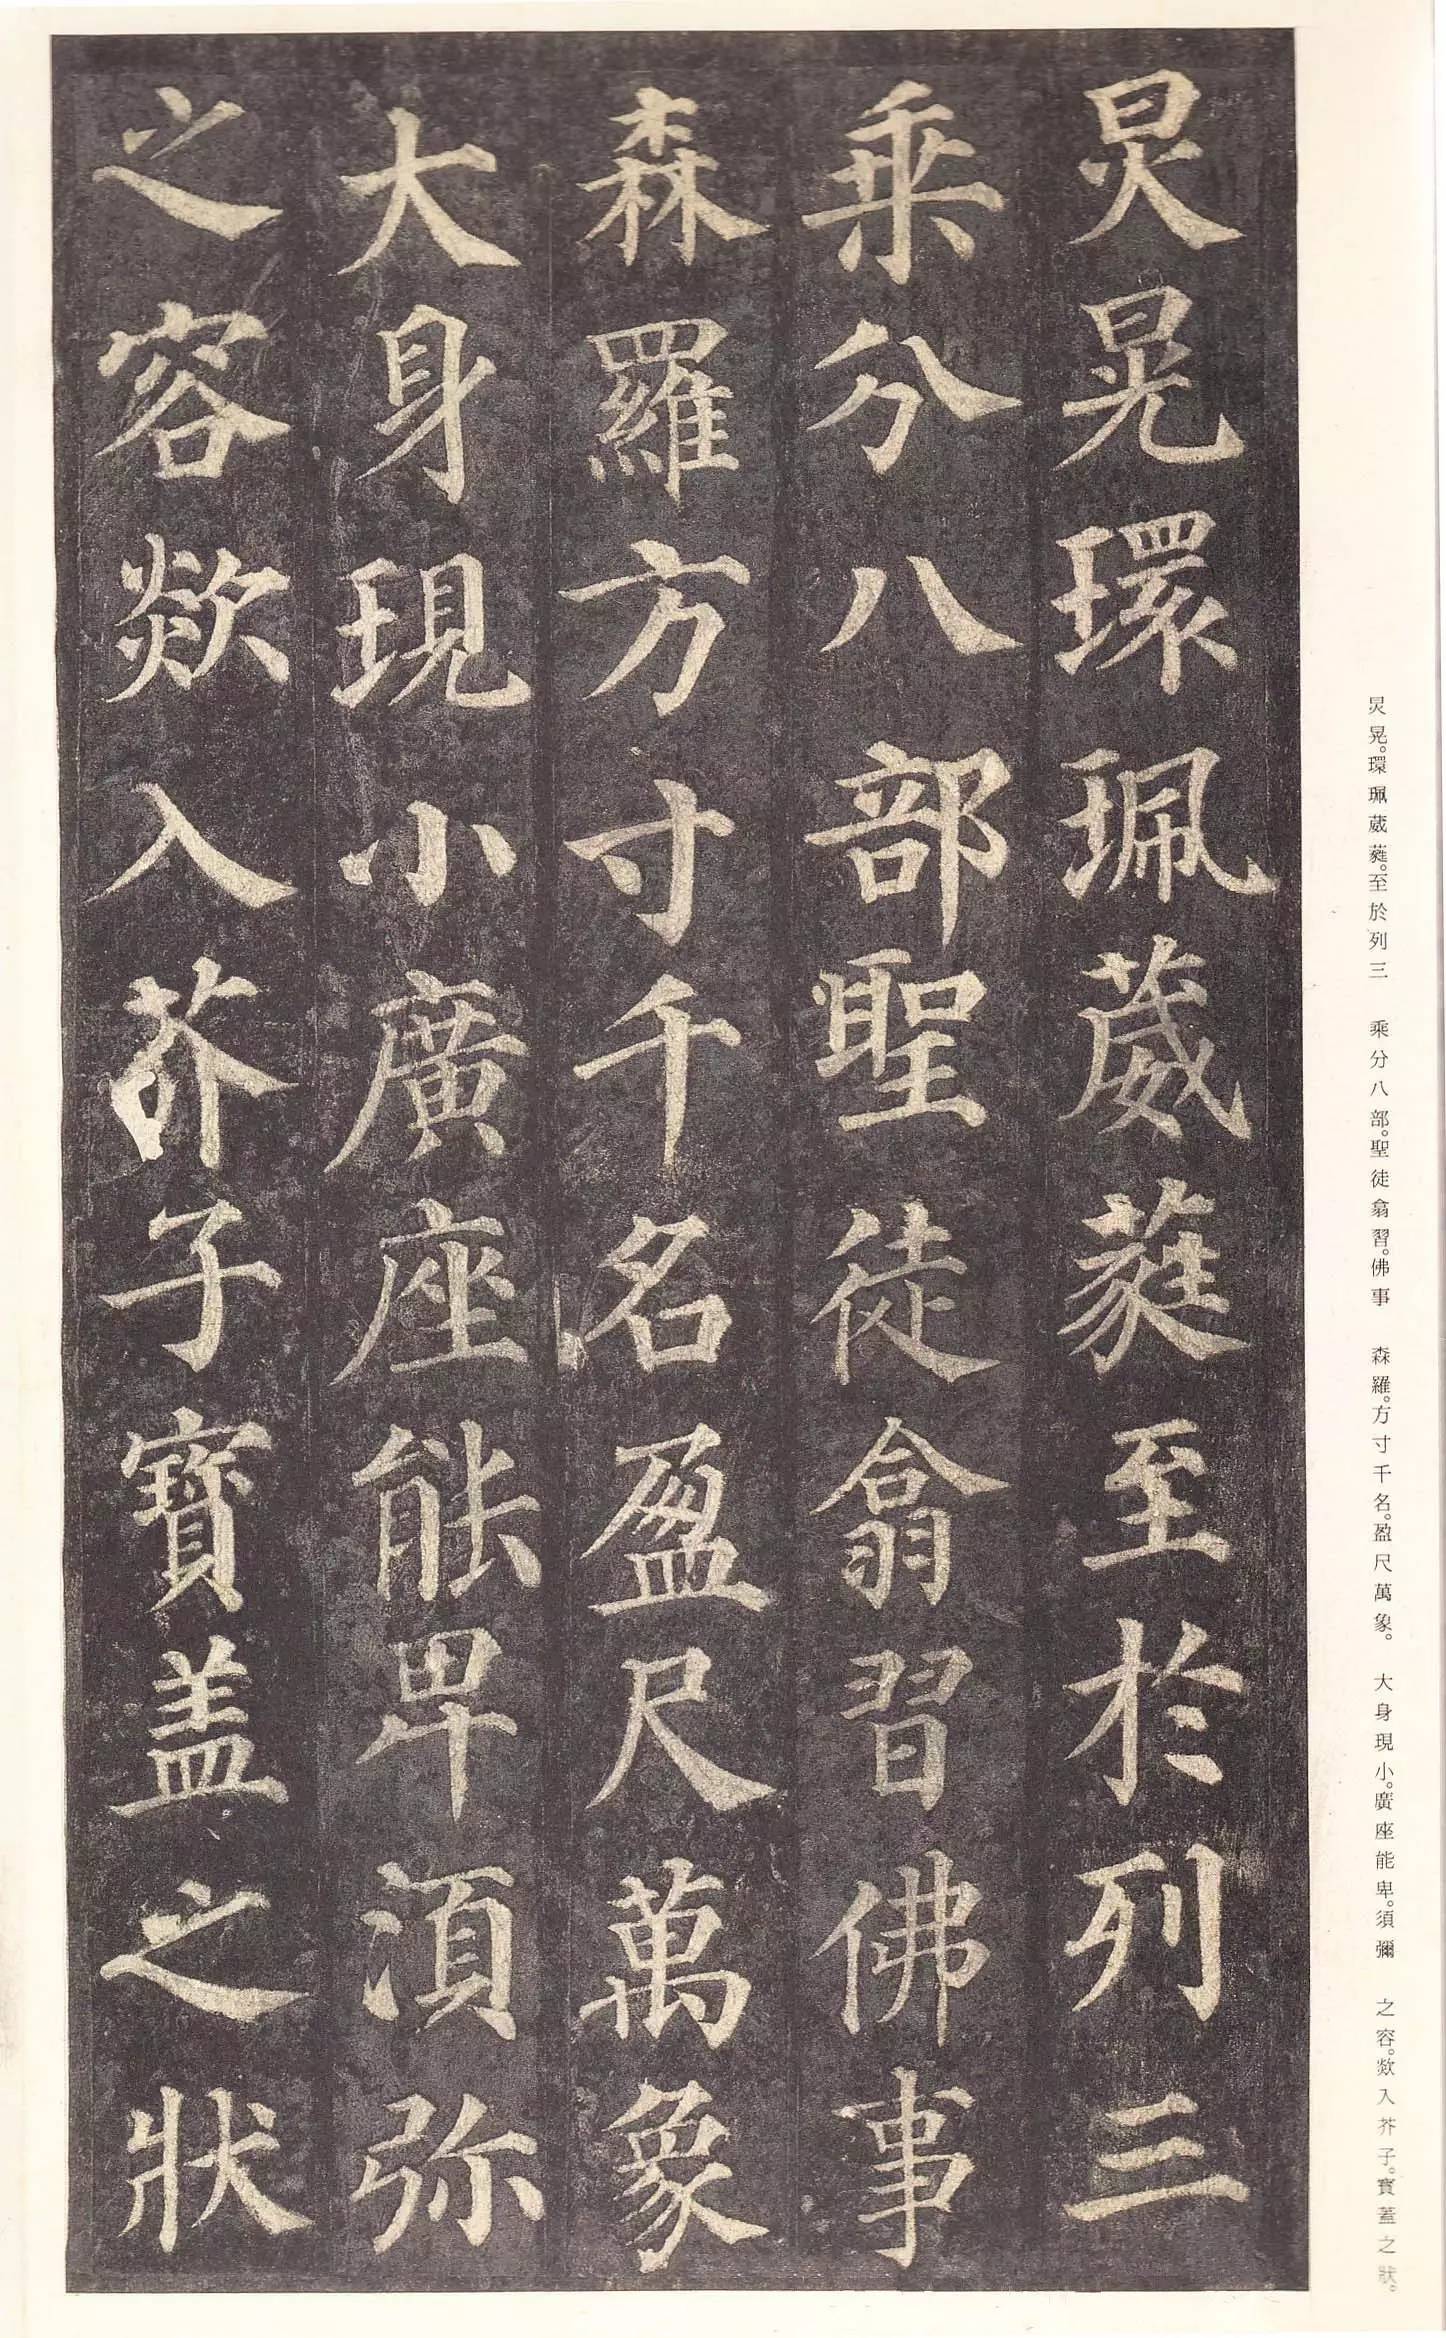 炅晃環珮葳蕤至於列三
乘分八部聖徒翕習佛事
森羅方寸千名盈尺萬象
大身現小廣座能卑湏弥
之容欻入芥子寶盖之狀
炅晃。環珮葳蕤。至於列三　乘分八部。聖徒翕習。佛事　森羅。方寸千名。盈尺萬象。　大身現小。廣座能卑。須彌　之容。欻入芥子。寳蓋之狀。